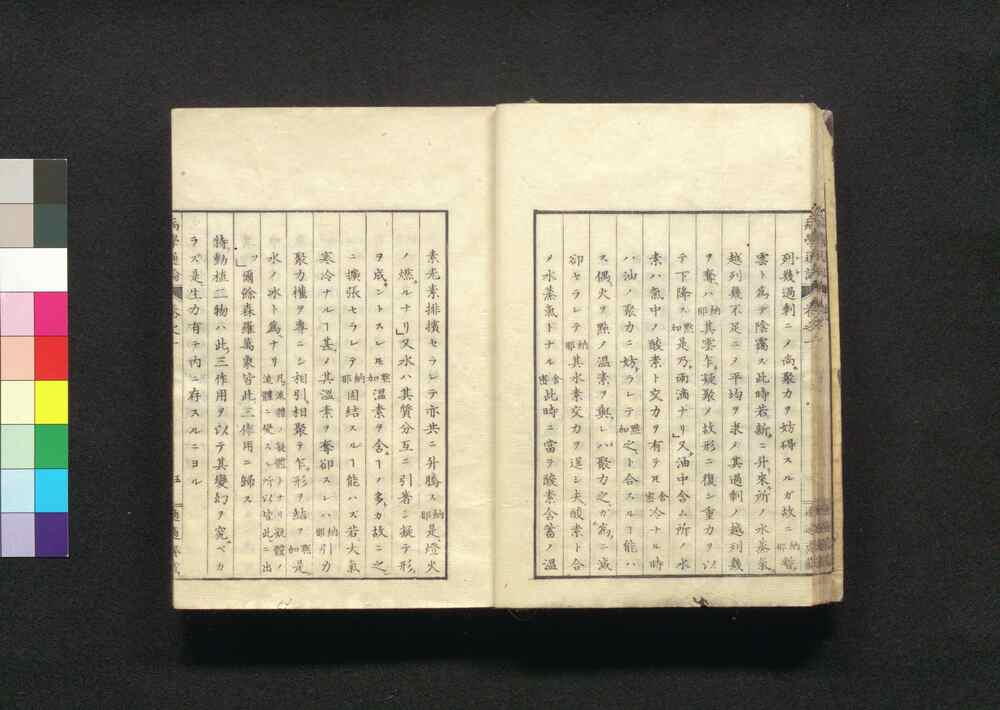 列幾過剰ニノ尚聚力ヲ妨碍スルガ故ニ
雲ト為テ陰靄ス此時若新ニ升来所ノ水蒸氣
越列幾不足ニノ平均ヲ求メ其過剰ノ越列幾
ヲ奪ハ其零乍凝聚ノ故形ニ復シ重力ヲ以
テ下降ス是乃雨滴ナリ」又油中含ム所ノ水
素ハ氣中ノ酸素ト交力ヲ有テモ冷ナル時
ハ油ノ聚力ニ妨ラレテ之ト合スルヿ能ハ
ス偶火ヲ點ノ温素ヲ與レハ聚力之カ為ニ減
却セラレテ其水素交力ヲ逞シ夫酸素ト合
メ水蒸氣トナル此時ニ當ヲ酸素含蓄ノ温
素光素排擯セラレテ亦共ニ升騰ス是燈火
ノ燃ルナリ」又水ハ其質分互ニ引著シ凝テ形
ヲ成ントスレモ温素ヲ含ヿノ多カ故ニ之
ニ擴張セラレテ固結スルヿ能ハズ若大氣
寒冷ナルヿ甚ノ其温素ヲ奪卻スレハ引力
聚力權ヲ專ニシ相引相聚テ乍形ヲ結フ是
水ノ氷ト為ナリ
」爾餘森羅萬象皆此三作用ニ歸ス
特動植二物ハ此三作用ヲ以テ其變幻ヲ究ベカ
ラズ是生力有テ内ニ存スルニヨル
病學通論 卷之一
五